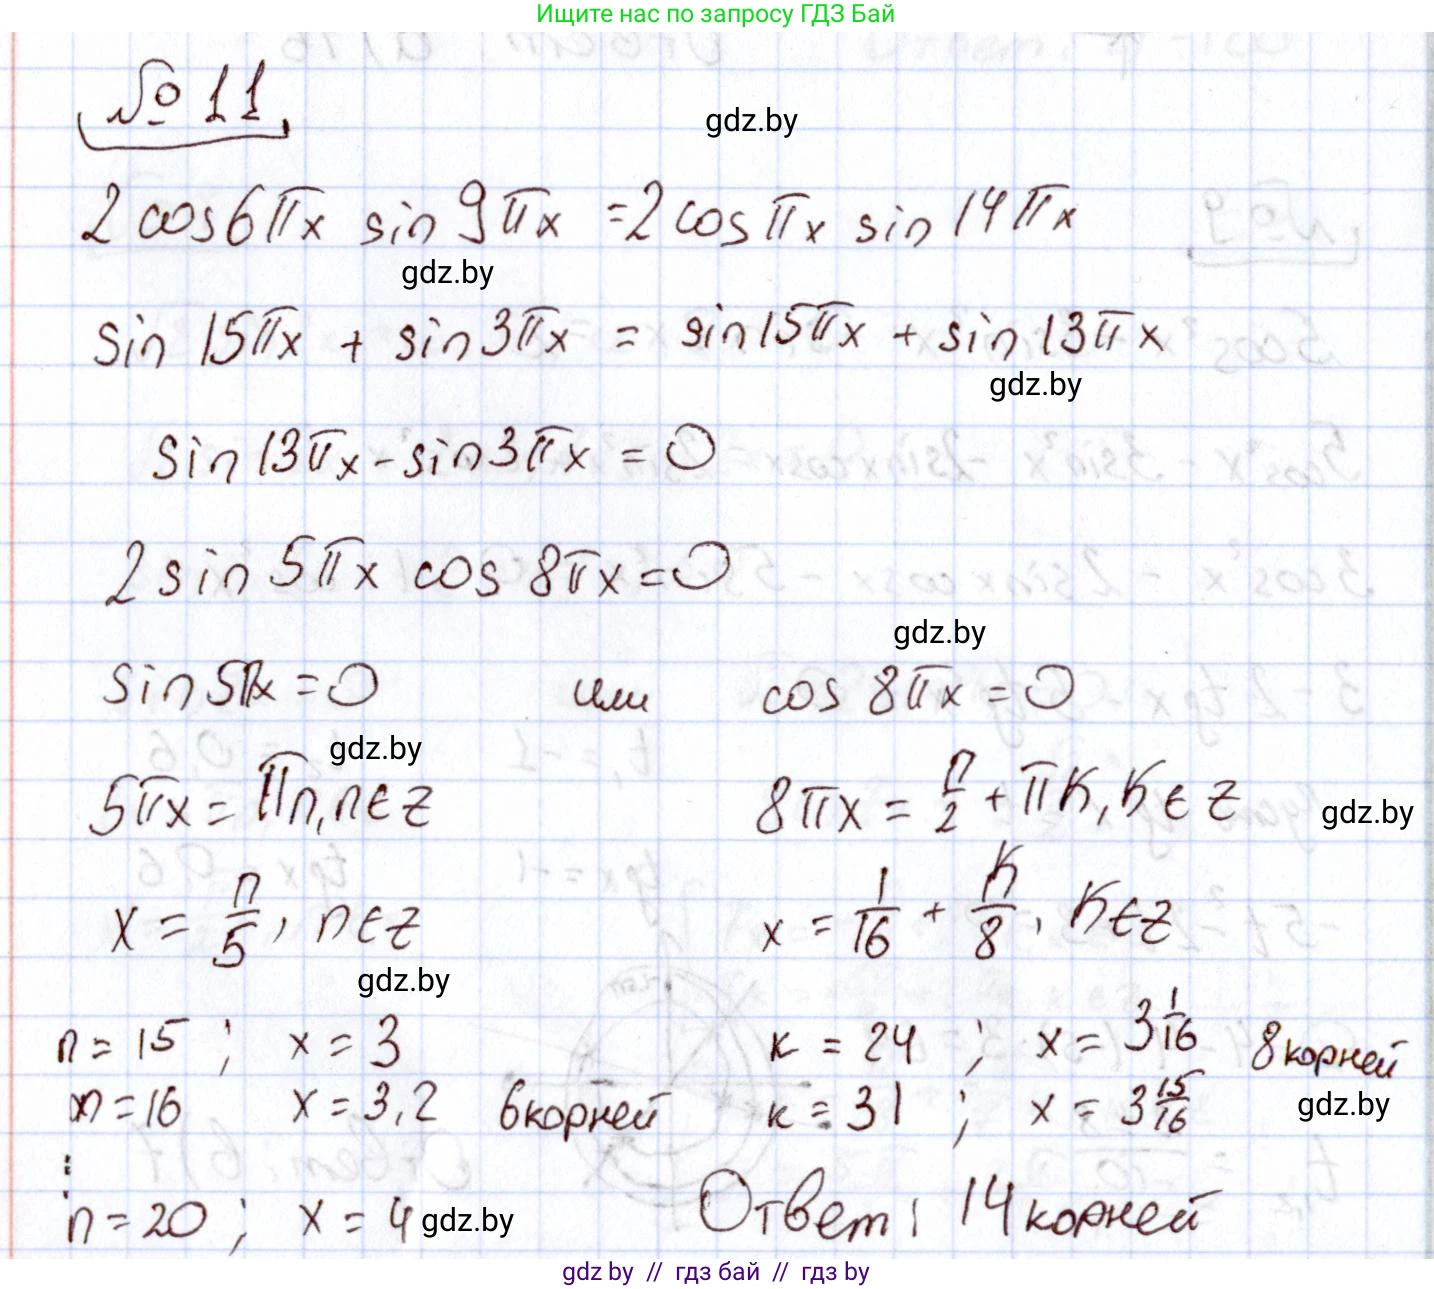 Ищите нас по запросу ГДЗ Бай
№ 11
gdz.by
2 cos 6πx sin 9πx = 2 cos πx sin 14πx
gdz.by
sin 15πx + sin 3πx = sin 15πx + sin 13πx
gdz.by
sin 13πx - sin 3πx = 0
2 sin 5πx cos 8πx = 0
gdz.by
sin 5πx = 0 или cos 8πx = 0
gdz.by
5πx = πn, n∈z 8πx = π/2 + πK, K∈Z gdz.by
x = n/5, n∈z x = 1/16 + K/8, K∈Z
gdz.by
n = 15 ; x = 3 к = 24 ; x = 3 1/16 8 корней
n = 16 x = 3,2 6 корней к = 31 ; x = 3 15/16 gdz.by
⋮
n = 20 ; x = 4 gdz.by Ответ: 14 корней
gdz by // гдз бай // гдз by